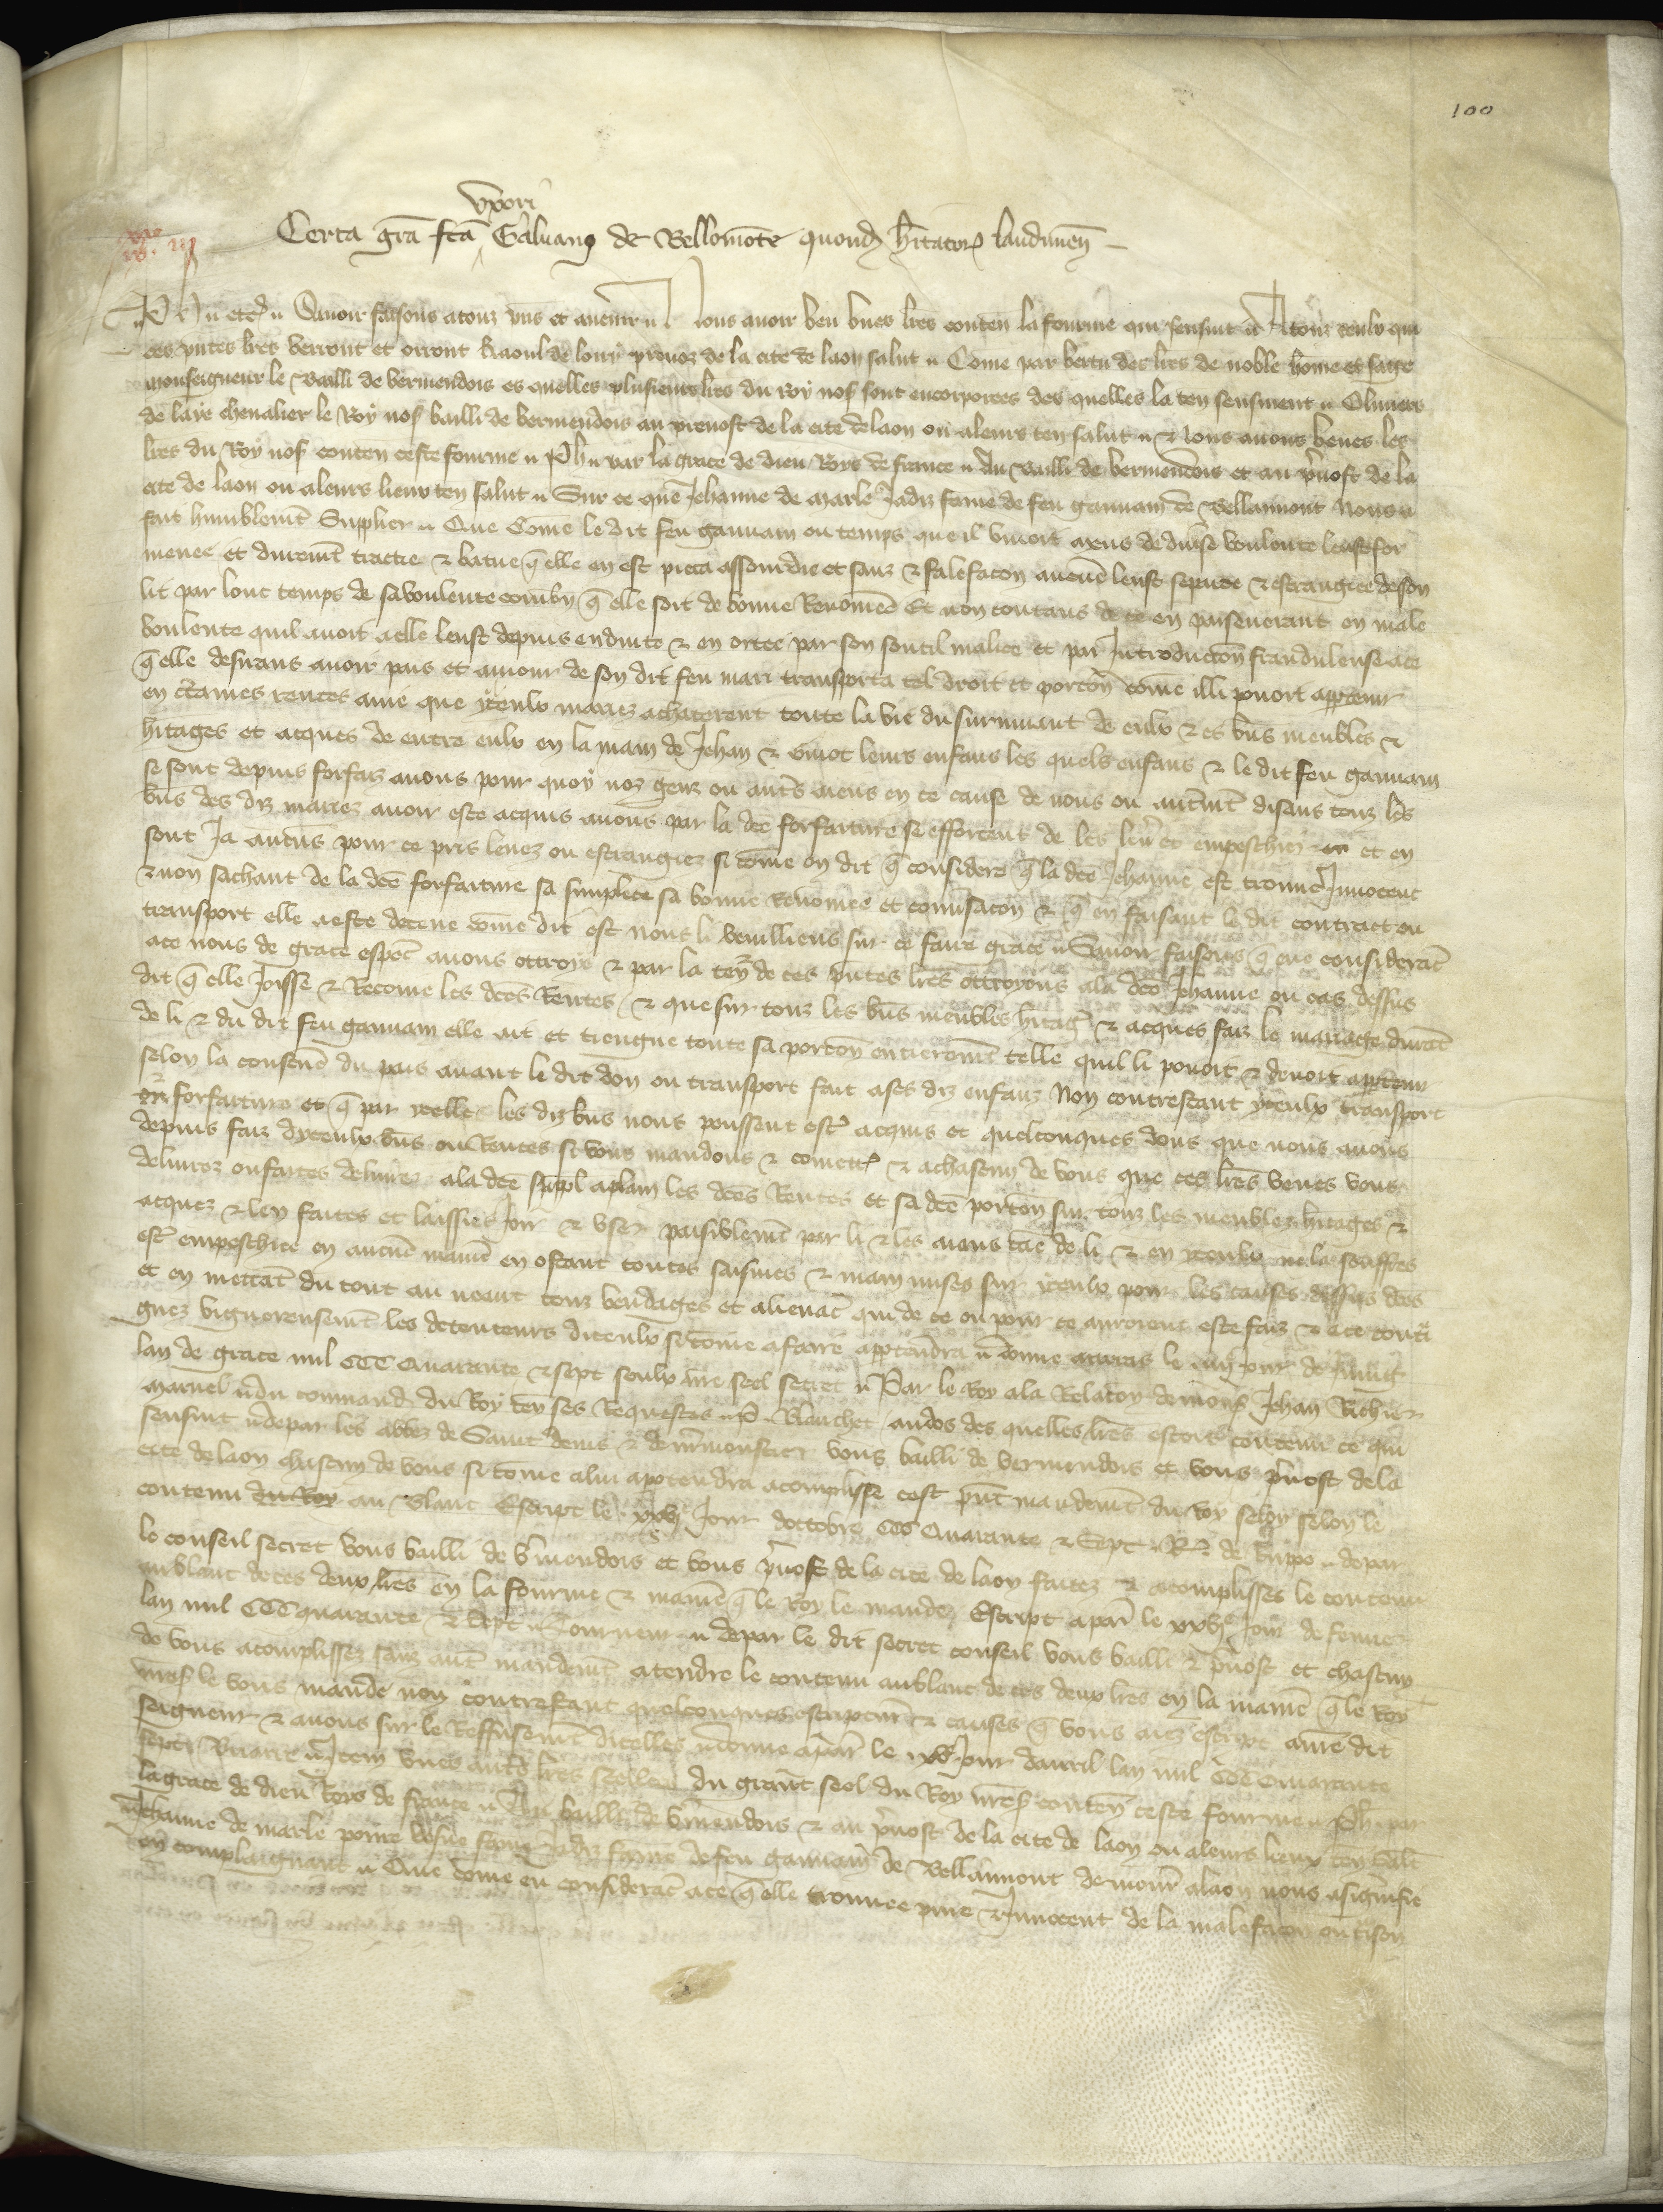 100
uxori
Certa gra fca Galuano de Bellomote quond h̄itatoꝝ laudunen̄
Ph etc Sauoir faisons a touz p̄ns et auenir Nous auoir veu unes lres conten la fourme qui sensuit A touz ceulx qui
ces p̄ntes lres verront et orront Raoul de loury preuoz de la cite de laon salut Come par vertu des lres de noble home et sage
monseigneur le Bailli de vermendois es quelles plusieurs lres du roy nos sont encorporees des quelles la ten sensuient Oliuiers
de laye cheualier le Roy nos bailli de vermendois au preuost de la cite de laon ou a leurs ten salut Nous auons veues les
lres du Roy nos conten ceste fourme Ph par la grace de dieu Roys de france Au Bailli de vermendois et au p̄uost de la
cite de laon ou a leurs lieux ten salut Sur ce que Jehanne de marle Jadiz fame de feu gauuain de Bellaumont Nous a
fait humblemt Supplier Que Come le dit feu gauuain ou temps que il viuoit meus de diuse voulente leust for
menee et durement traictie & batue q̄ elle en est pieca assourdie et sanz & sa lefacon aucune leust separee & estrangiee de son
lit par lonc temps de sa voulente combn q̄ elle soit de bonne Renomee Et non contans de ce en perseuerant en male
voulente quil auoit a elle leust depuis enduite & en ortee par son soutil malice et par Introducton fraudulense a ce
q̄ elle desirans auoir pais et amour de son dit feu mari transporta tel droit et porton come illi pouoit apptenir
en ctaines rentes a vie que yceulx mariez achaterent toute la vie du suruiuant de eulx & es bns meubles &
hitages et acques de entre eulx en la main de Jehan & Guiot leurs enfans les quels enfans & le dit feu gauuain
se sont depuis forfaiz auons pour quoy noz genz ou autres aiens en ce cause de nous ou autremt disans touz les
bns des diz mariez auoir este acquis a nous par la dce forfaiture se efforcent de les leuer et empeschier et en
sont Ja aucuns pour ce pris leuez ou estrangiez si come on dit q̄ considere q̄ la dce Jehanne est trouuee Innocent
& non sachant de la dce forfaiture sa simplece sa bonne Renomee et conuersacon & q̄ en faisant le dit contract ou
transport elle a este deceue come dit est nous li vueilliens sur ce faire grace Sauoir faisons q̄ eue consideracion
a ce nous de grace especl auons ottroye & par la teneur de ces p̄ntes lres ottroyons a la dce Jehanne ou cas dessus
dit q̄ elle Joisse & Recoiue les dces Rentes & que sur touz les bns meubles hitages & acques faiz le mariage durant
de li & du dit feu gauuain elle ait et tiengne toute sa porton entieremt telle quil li pouoit & deuoit apptenir
selon la coustume du pais auant le dit don ou transport fait a ses diz enfanz Non contrestant yceulx transport
forfaiture et q̄ par ycelle les diz bns nous peussent estre acquis et quelconques dons que nous auons
depuis faiz dyceulx bns ou Rentes si vous mandons & comettons & a chascun de vous que ces lres veues vous
deliurez ou faites deliurer a la dce suppl a plain les dces Rentes et sa dce porton sur touz les meubles hitages &
acquez & len faites et laissiez Joir & user paisiblemt par li & les aians cause de li & en yceulx ne la souffres
estre empeschiee en aucune maniere en ostant toutes saisines & main mises sur yceulx pour les causes dessus dces
et en mettant du tout au neant touz vendages et alienacons qui de ce ou pour ce auroient este faiz & a ce contrai
gnez viguereusemt les detenteurs diceulx si come a faire apptendra Donne le iiij Jour de
lan de grace mil CCC Quarante & sept soulz nre seel secret Par le Roy a la Relacon de mons Jehan Richier
du commandement du Roy tenens ses Requestes P. Blanchet au dos des quelles lres estoit contenu ce qui
sensuit depar les abbez de Saint denis & de mermonstier vous bailli de vermendois et vous p̄uost de la
cite de laon chascun de vous si come a lui appotendra acomplisse cest p̄nt mandemt du Roy selon le
contenu du Roy au blanc Escript le xxvj Jour doctobre CCC Quarante & Sept R. de depar
le conseil secret vous bailli de v̄mendois et vous p̄uost de la cite de laon faitez & acomplisses le contenu
au blanc de ces deux lres en la fourme & maniere q̄ le Roy le mande Escript a paris le xxvj Jour de feurier
lan mil CCC quarante & sept Tourneur depar le dit secret conseil vous bailli & p̄uost et chascun
de vous acomplissez sanz autre mandemt atendre le contenu au blanc de ces deux lres en la maniere q̄ le Roy
nres le vous mande non contrestant quelconques escriptures & causes q̄ vous aiez escript a nre dit
seigneur & a nous sur le Reffusemt dicelles Donne a paris le xv Jour dauril lan mil CCC Quarante
sept Item unes autres lres seellees du grant seel du Roy nres conten ceste fourme Ph par
la grace de dieu Roys de france Au bailli de v̄mendois & au p̄uost de la cite de laon ou a leurs lieux ten salut
Jehanne de marle poure vesue fame Jadiz feme de feu gauuain de Bellaumont demouranz a laon nous a signifie
en complaignant Que come eu consideracion a ce q̄ elle trouuee pure & Innocent de la malefacon ou